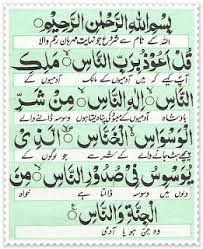 بِسْمِ اللهِ الرَّحْمٰنِ الرَّحِيْمِ
اللہ کے نام سے شروع جو نہایت مہربان رحم والا
قُلْ اَعُوْذُ بِرَبِّ النَّاسِۙ مَلِكِ
آپ کہئے کہ میں آدمیوں کے مالک آدمیوں کے
النَّاسِۙ اِلٰهِ النَّاسِۙ مِنْ شَرِّ
بادشاہ آدمیوں کے پناہ لیتا ہوں
الْوَسْوَاسِ ۙ الْخَنَّاسِۙ الَّذِىْ
پیچھے ہٹ جانے والے کے شر سے جو لوگوں کے
يُوَسْوِسُ فِىْ صُدُوْرِ النَّاسِۙ مِنَ
دلوں میں وسوسہ ڈالتا ہے خواہ
الْجِنَّةِ وَالنَّاسِ
وہ جن ہو یا آدمی